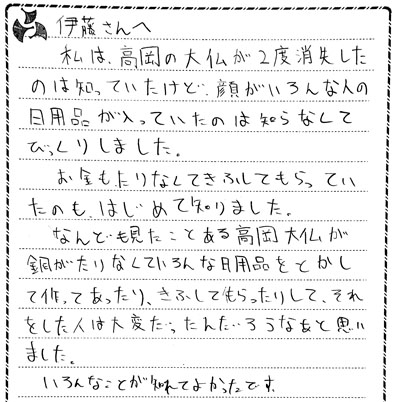 伊藤さんへ
私は、高岡の大仏が2度消失した
のは知っていたけど、顔がいろんな人の
日用品が入っていたのは知らなくて
びっくりしました。
お金もたりなくてきふしてもらってい
たのも、はじめて知りました。
なんども見たことある高岡大仏が
銅がたりなくていろんな日用品をとかし
て作ってあったり、きふしてもらったりして、それ
をした人は大変だったんだろうなあと思い
ました。
いろんなことが知れてよかったです。